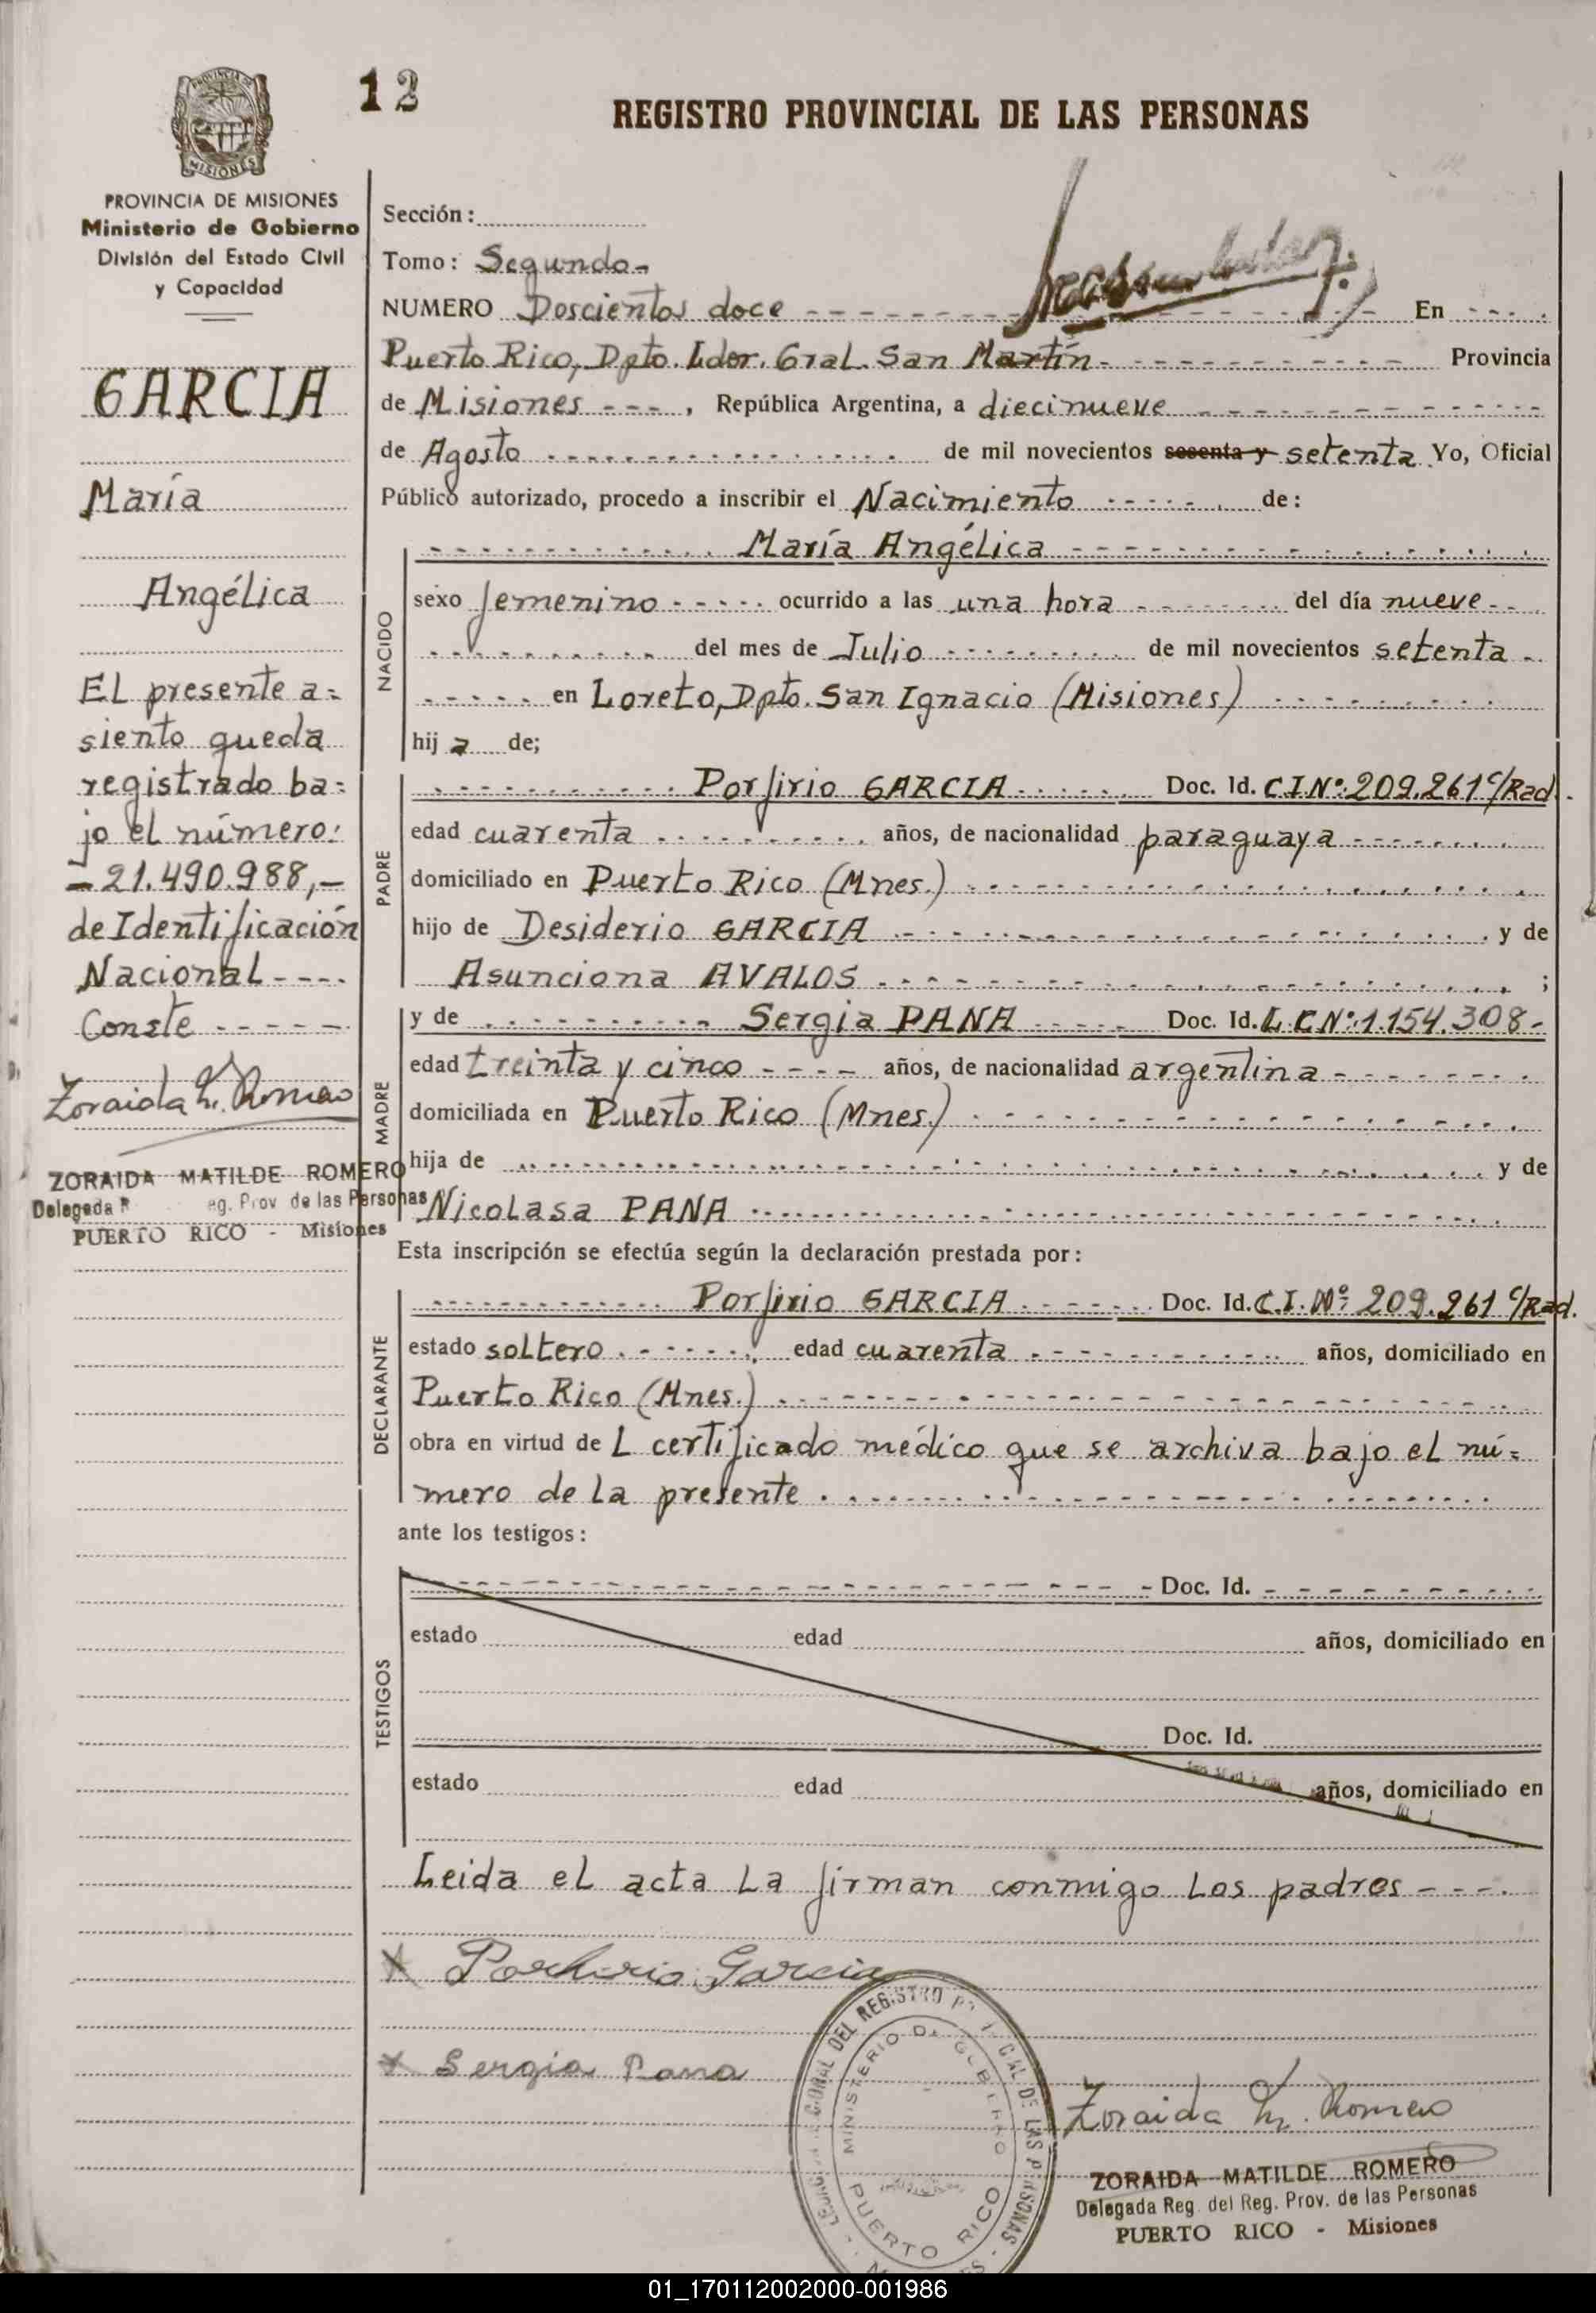 12
REGISTRO PROVINCIAL DE LAS PERSONAS
MISIONES
PROVINCIA DE MISIONES
Ministerio de Gobierno
División del Estado Civil
y Capacidad
GARCIA
María
Angélica
El presente a=
siento queda
registrado ba=
jo el número:
=21.490.988,-
de Identificación
Nacional - - - -
Conste - - - - -
Zoraida M. Romero
ZORAIDA MATILDE ROMERO
Delegada R eg. Prov de las Personas
PUERTO RICO - Misiones
Sección:
Tomo: Segundo-
NUMERO Doscientos doce En
Puerto Rico, Dpto. Lder. Gral. San Martín- Provincia
de Misiones - - - , República Argentina, a diecinueve
de Agosto de mil novecientos sesenta y setenta Yo, Oficial
Público autorizado, procedo a inscribir el Nacimiento de:
NACIDO
María Angélica
sexo femenino ocurrido a las una hora del día nueve
del mes de Julio de mil novecientos setenta
en Loreto, Dpto. San Ignacio (Misiones)
hij a de;
PADRE
Porfirio GARCIA Doc. Id. C.I.Nº:209.261 c/Rad.
edad cuarenta años, de nacionalidad paraguaya
domiciliado en Puerto Rico (Mnes.)
hijo de Desiderio GARCIA y de
Asunciona AVALOS ;
MADRE
y de Sergia PANA Doc. Id. L.C.Nº:1.154.308-
edad treinta y cinco años, de nacionalidad argentina
domiciliada en Puerto Rico (Mnes.)
hija de y de
Nicolasa PANA
Esta inscripción se efectúa según la declaración prestada por:
DECLARANTE
Porfirio GARCIA Doc. Id. C.I. Nº: 209.261 c/Rad.
estado soltero edad cuarenta años, domiciliado en
Puerto Rico (Mnes.)
obra en virtud de L certificado médico que se archiva bajo el nú=
mero de la presente
ante los testigos:
TESTIGOS
Doc. Id.
estado edad años, domiciliado en
Doc. Id.
estado edad años, domiciliado en
Leida el acta la firman conmigo los padres - - -
X Porfirio Garcia
X Sergia Pana
DEL REGISTRO DE LAS PERSONAS
MINISTERIO DE GOBIERNO
PUERTO RICO
Zoraida M. Romero
ZORAIDA MATILDE ROMERO
Delegada Reg. del Reg. Prov. de las Personas
PUERTO RICO - Misiones
01_170112002000-001986